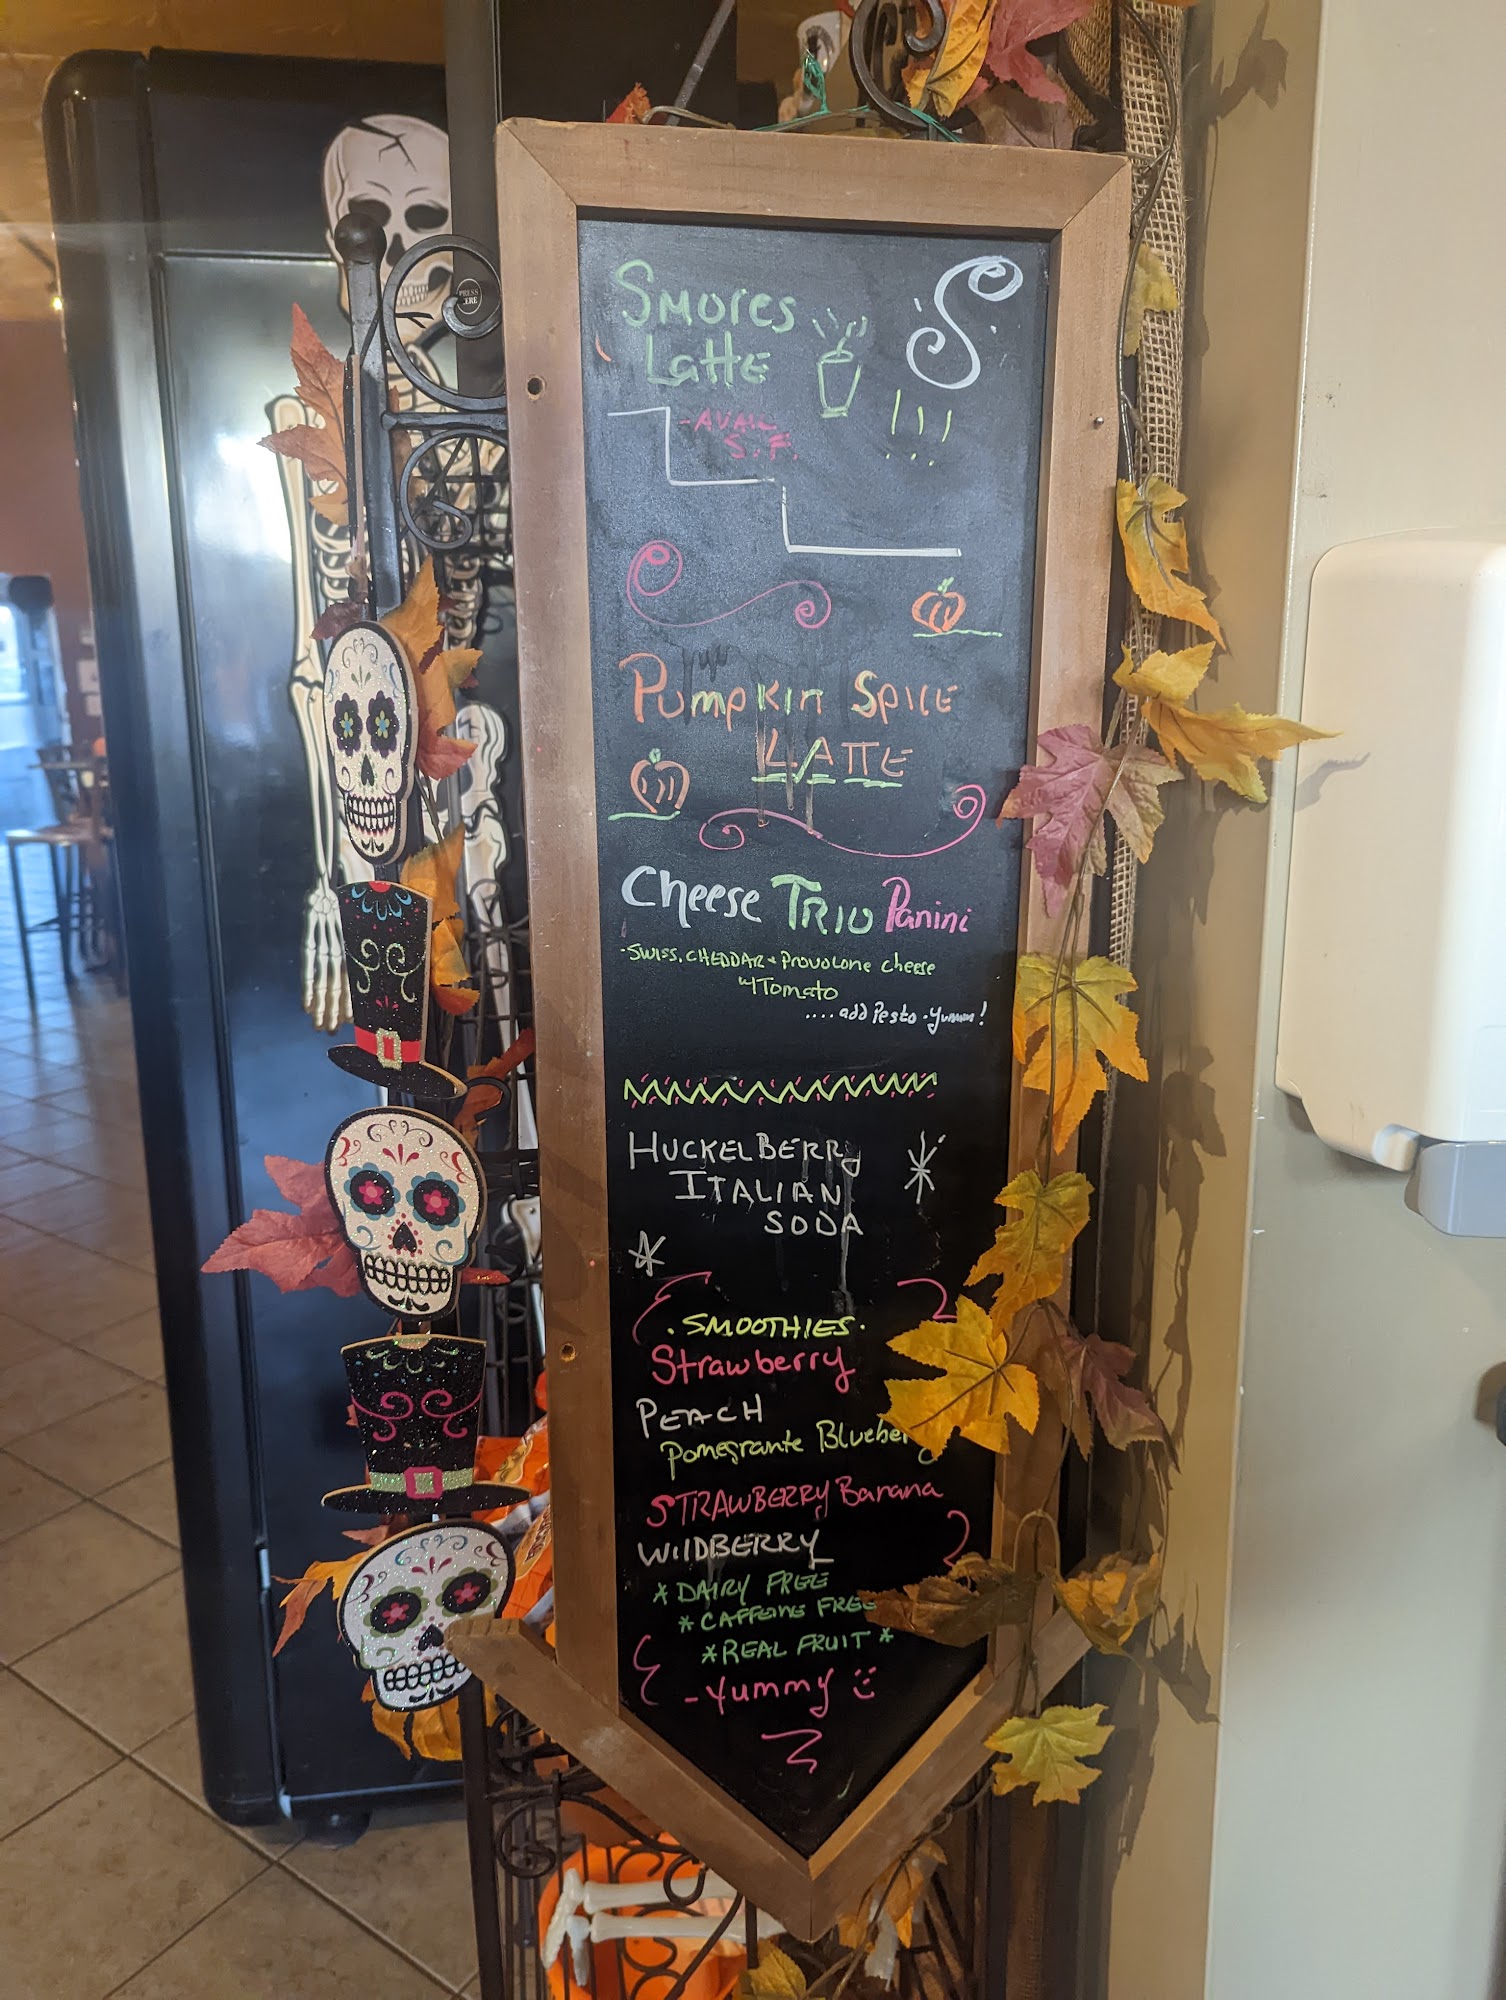 Smores
Latte
-AVAIL
S.F.
!!!
S
PRESS
HERE
Pumpkin Spice
LATTE
Cheese TRIO Panini
-SWISS, CHEDDAR + Provolone cheese
w/Tomato
....add Pesto-Yumm!
HUCKELBERRY
ITALIAN
SODA
.SMOOTHIES.
Strawberry
PEACH
Pomegrante Blueberry
STRAWBERRY Banana
WIlDBERRY
*DAIRY FREE
*CAFFEINE FREE
*REAL FRUIT*
-Yummy